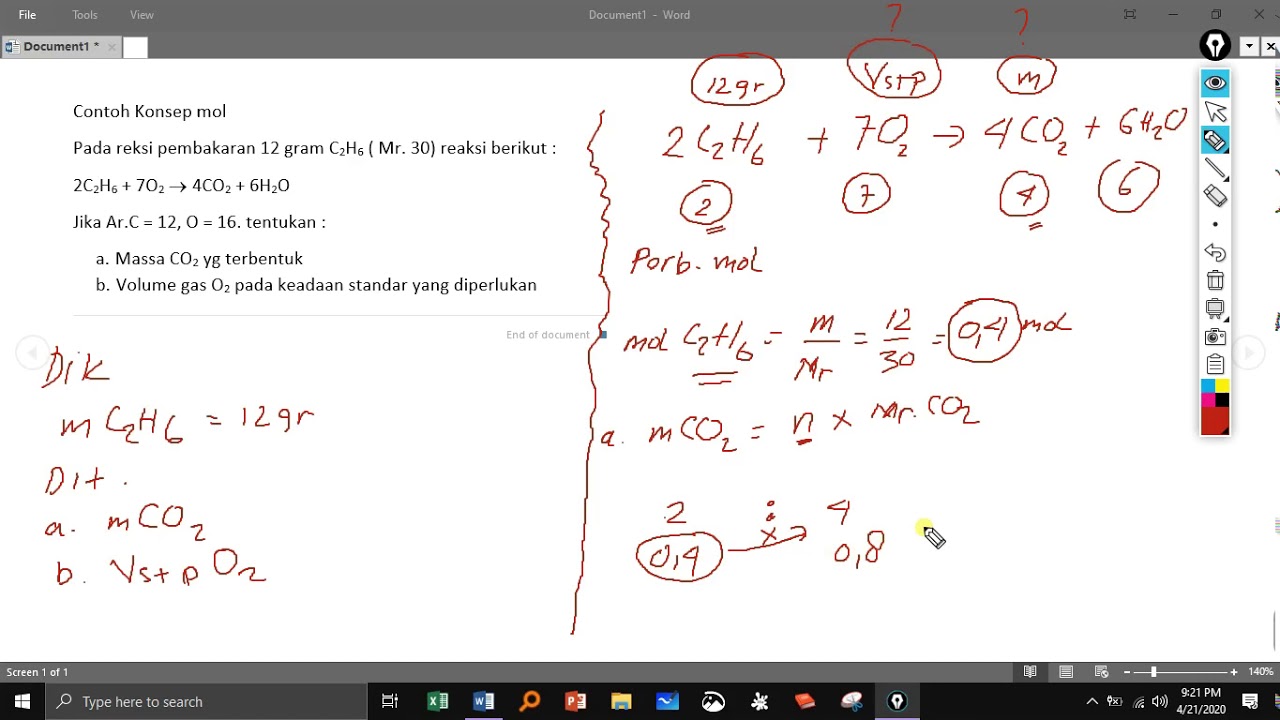 File Tools View Document1 - Word
Document1 *
Contoh Konsep mol
Pada reksi pembakaran 12 gram C₂H₆ ( Mr. 30) reaksi berikut :
2C₂H₆ + 7O₂ → 4CO₂ + 6H₂O
Jika Ar.C = 12, O = 16. tentukan :
a. Massa CO₂ yg terbentuk
b. Volume gas O₂ pada keadaan standar yang diperlukan
End of document
Dik
m C₂H₆ = 12gr
Dit .
a. mCO₂
b. Vstp O₂
? ?
12gr Vstp m
2C₂H₆ + 7O₂ → 4CO₂ + 6H₂O
2 7 4 6
Perb. mol
mol C₂H₆ = m/Mr = 12/30 = 0,4 mol
a. mCO₂ = n x Mr. CO₂
2 : 4
0,4 x→ 0,8
Screen 1 of 1 140%
Type here to search
9:21 PM
4/21/2020